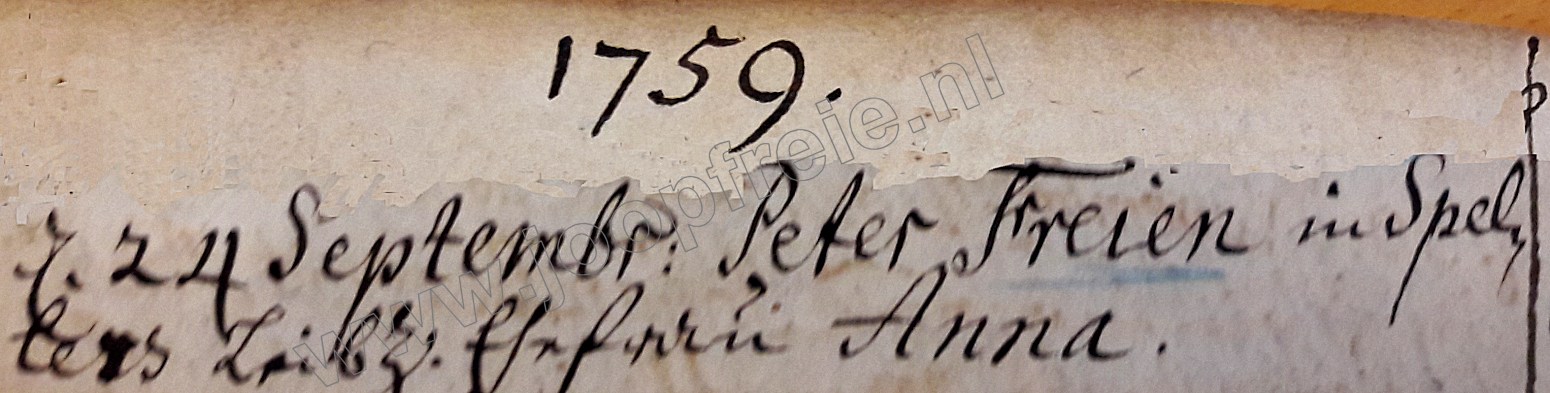 1759.
d. 24 Septembr: Peter Freien in Spel,
lers Leibz. Ehefrau Anna.
www.joopfreie.nl